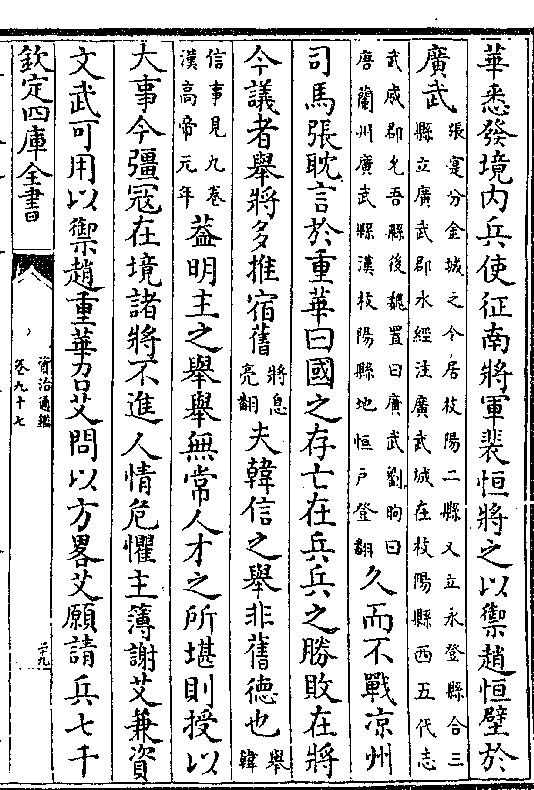 華悉發境内兵使征南將軍裴恒將之以禦趙恒壁於
廣武
張寔分金城之今居枝陽二縣又立永登縣合三
縣立廣武郡水經注廣武城在枝陽縣西五代志
武威郡允吾縣後魏置曰廣武劉昫曰
唐蘭州廣武縣漢枝陽縣地恒戶登翻
久而不戰凉州
司馬張耽言於重華曰國之存亡在兵兵之勝敗在將
今議者舉將多推宿舊
將息
亮翻
夫韓信之舉非舊德也
舉
韓
信事見九卷
漢高帝元年
葢明主之舉舉無常人才之所堪則授以
大事今彊冦在境諸將不進人情危懼主簿謝艾兼資
文武可用以禦趙重華召艾問以方畧艾願請兵七千
欽定四庫全書
資治通鑑
卷九十七